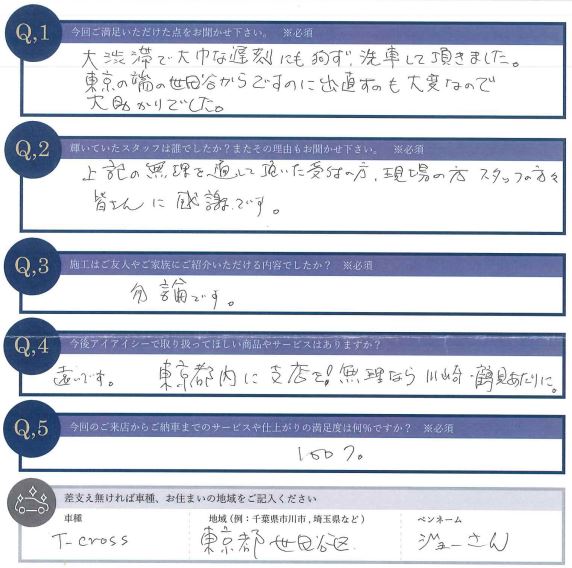 Q,1 今回ご満足いただけた点をお聞かせ下さい。 ※必須
大渋滞で大巾な遅刻にも拘ず、洗車して頂きました。
東京の端の世田谷からですのに出直すのも大変なので
大助かりでした。
Q,2 輝いていたスタッフは誰でしたか？またその理由もお聞かせ下さい。 ※必須
上記の無理を通して頂いた受付の方、現場の方 スタッフの方々
皆さんに感謝です。
Q,3 施工はご友人やご家族にご紹介いただける内容でしたか？ ※必須
勿論です。
Q,4 今後アイアイシーで取り扱ってほしい商品やサービスはありますか？
遠いです。 東京都内に支店を！無理なら川崎・鶴見あたりに。
Q,5 今回のご来店からご納車までのサービスや仕上がりの満足度は何％ですか？ ※必須
100％
差支え無ければ車種、お住まいの地域をご記入ください
車種 地域（例：千葉県市川市，埼玉県など） ペンネーム
T-cross 東京都世田谷区 ジョーさん